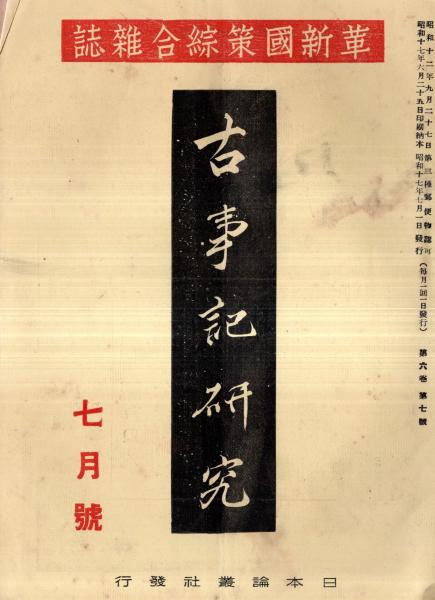 革新國策綜合雜誌
昭和十二年九月二十七日第三種郵便物認可
昭和十七年六月二十五日印刷納本 昭和十七年七月一日發行 (每月一回一日發行) 第六卷 第七號
古事記硏究
七月號
日本論叢社發行